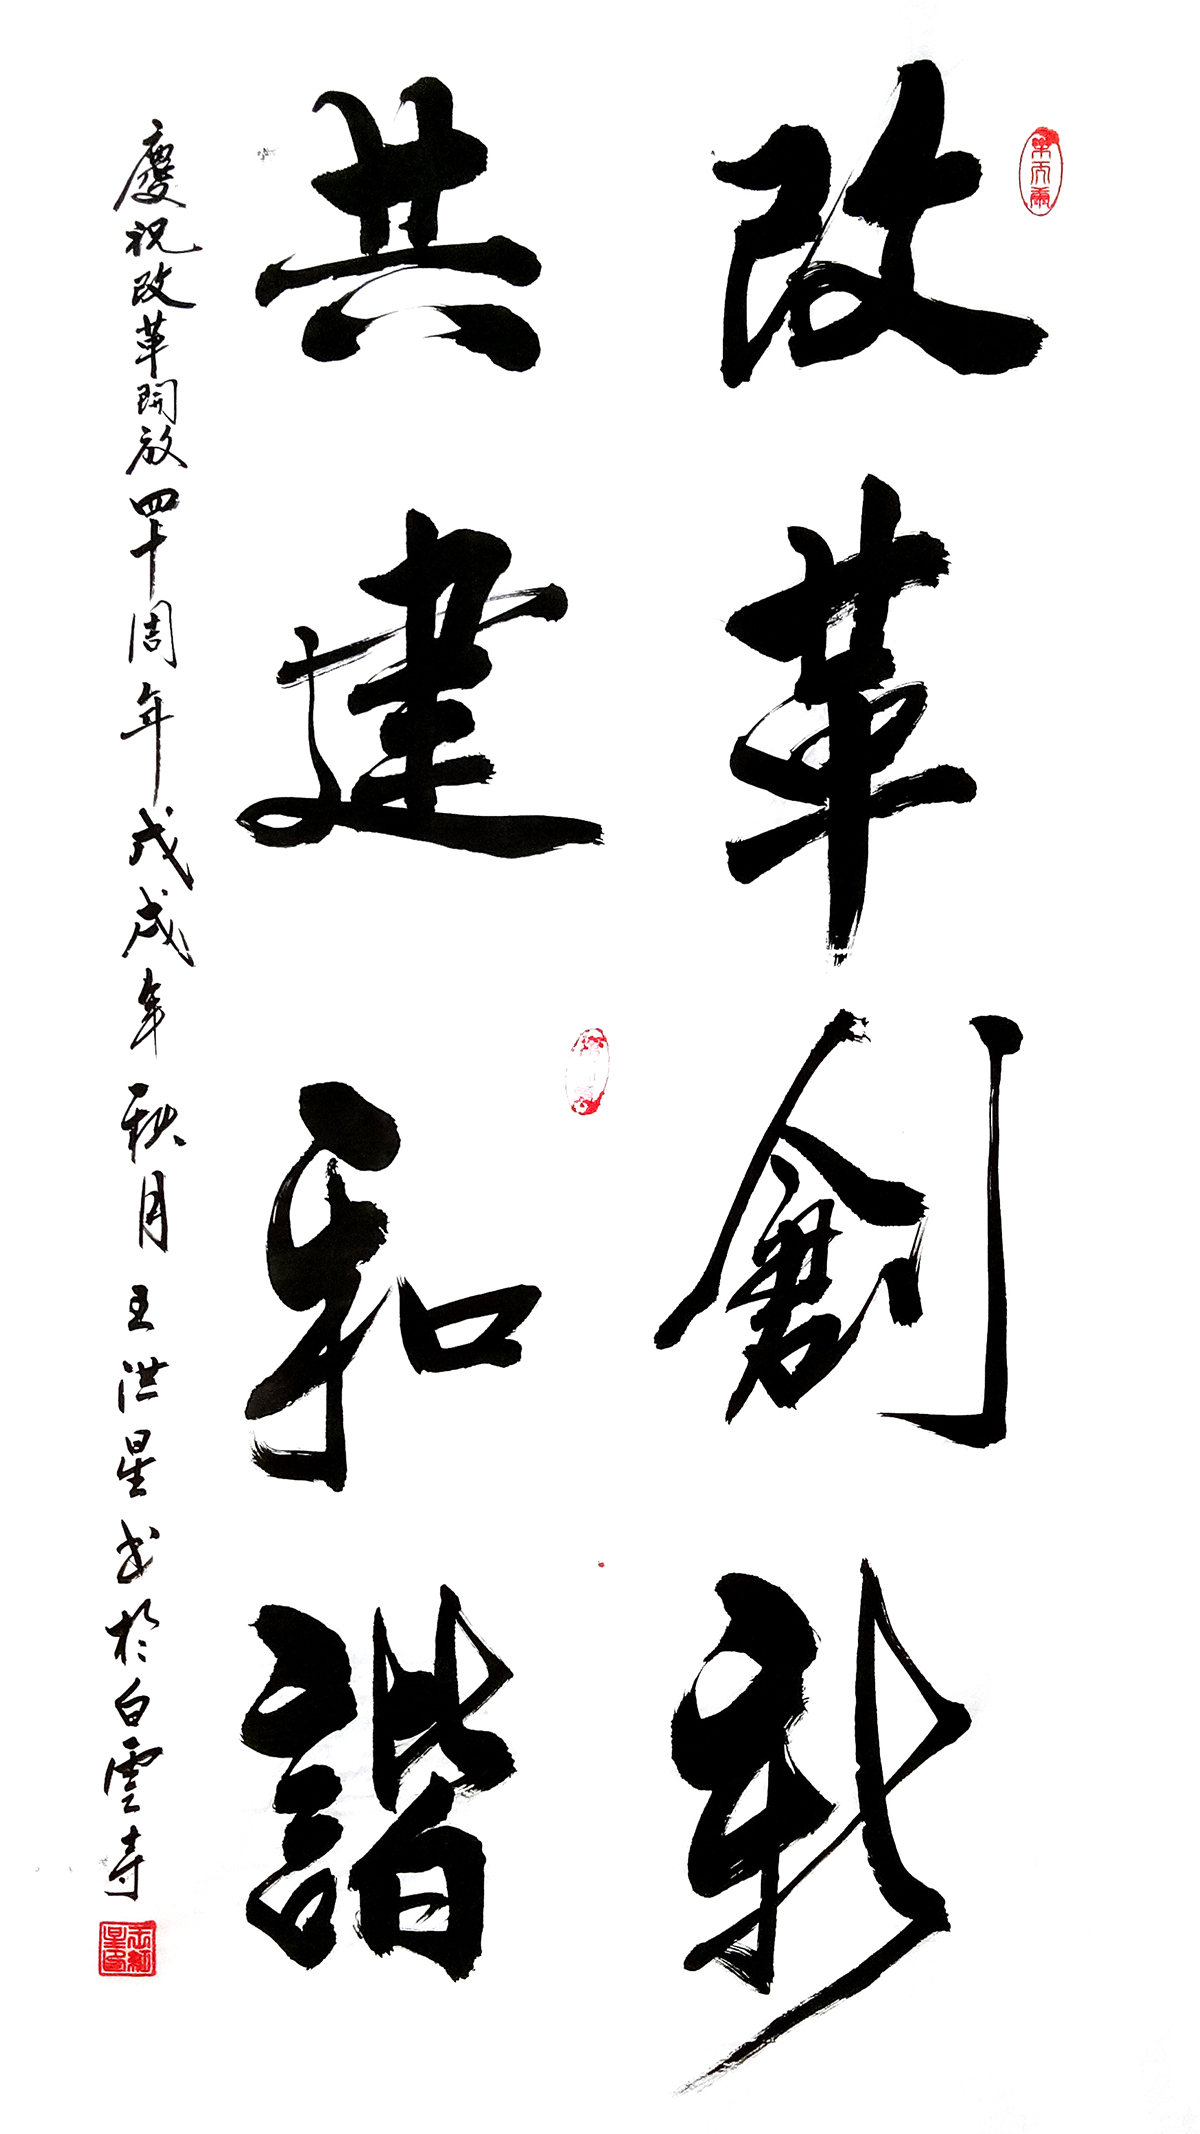 改革創新
共建和諧
慶祝改革開放四十周年戊戌年秋月王洪星书於白雲寺